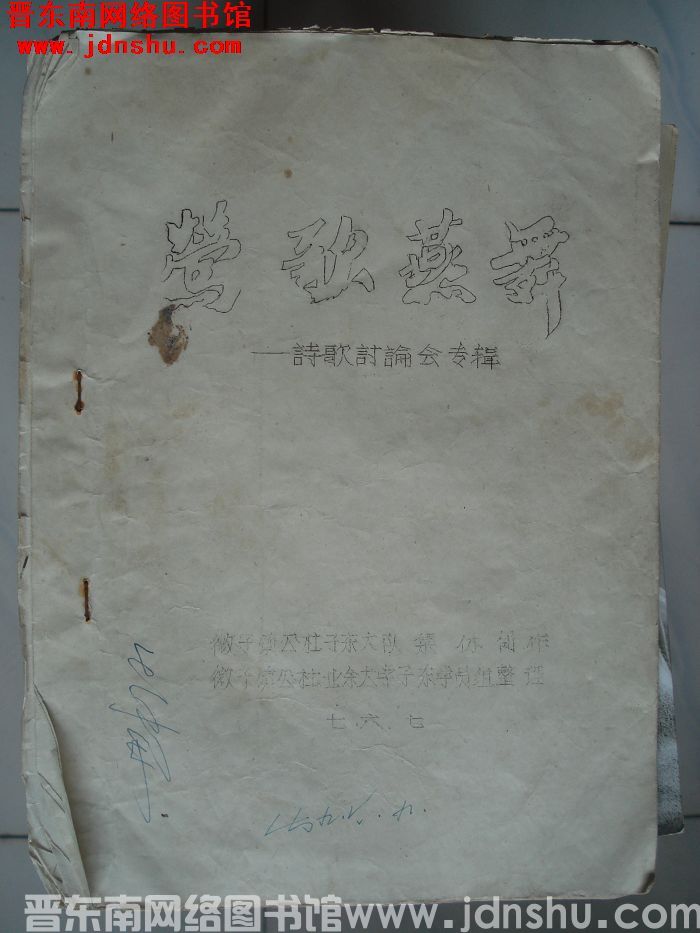 晋东南网络图书馆
www.jdnshu.com
鶯歌燕舞
—詩歌討論会专辑
微子鎮公社子东大队集体創作
微子鎮公社业余大学子东学员组整理
七.六.七
晋东南网络图书馆www.jdnshu.com